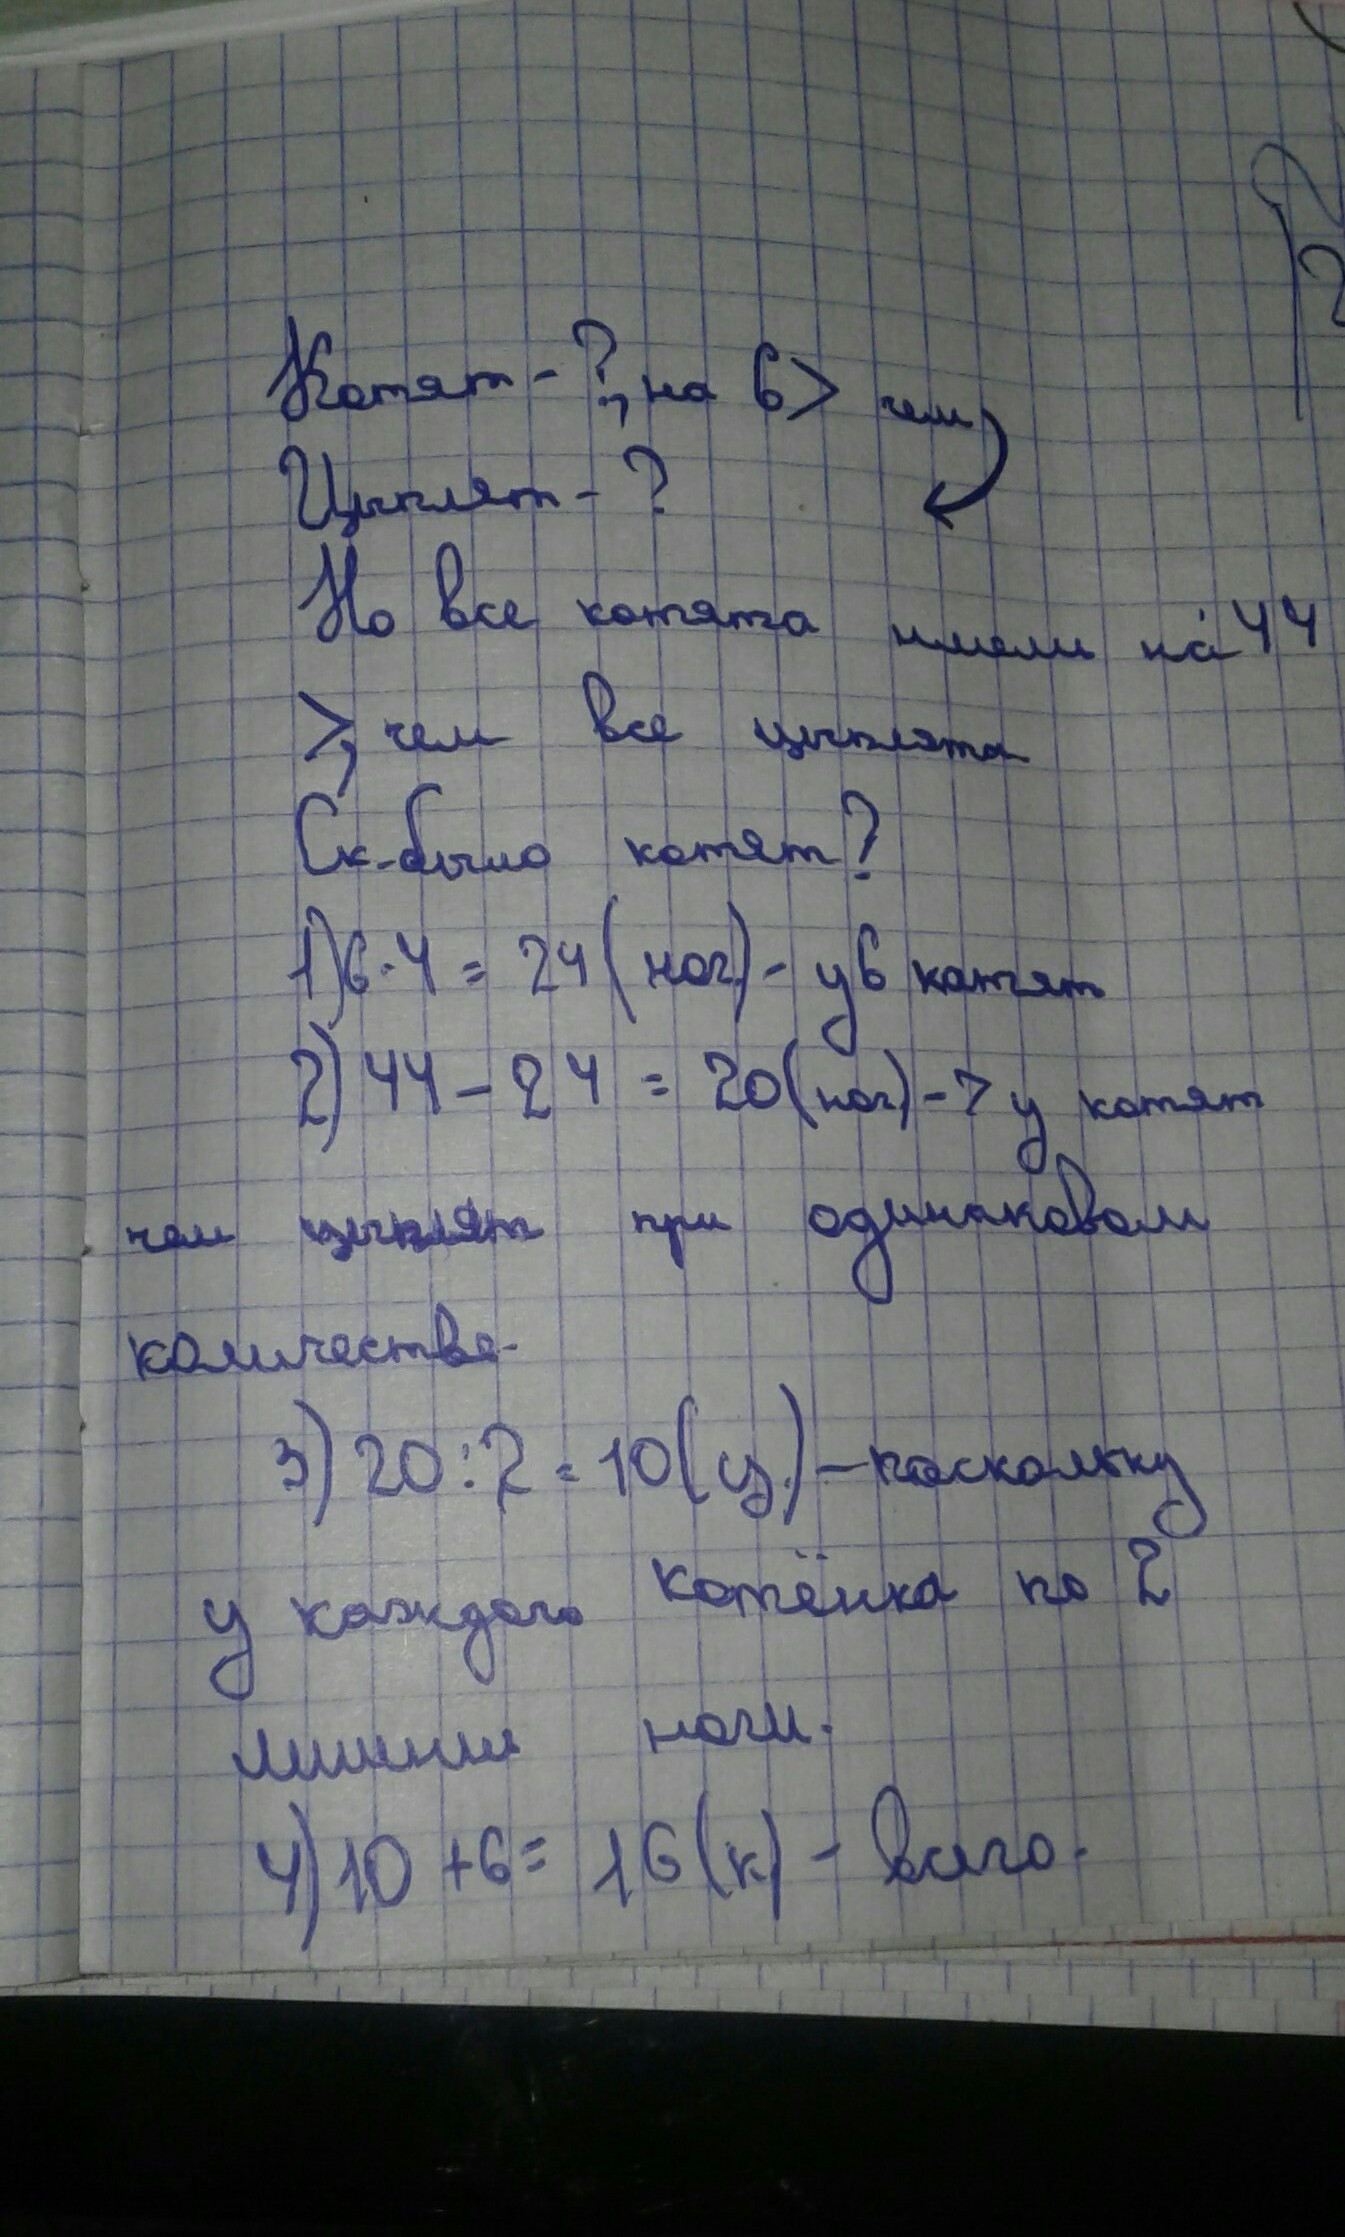 Котят - ?, на 6 > чем
Цыплят - ?
Но все котята имели на 44
>, чем все цыплята
Ск. было котят?
1) 6·4 = 24 (ног) - у 6 котят
2) 44 - 24 = 20 (ног) - > у котят
чем цыплят при одинаковом
количестве.
3) 20:2 = 10 (ц.) - поскольку
у каждого котёнка по 2
лишние ноги.
4) 10 + 6 = 16 (к) - всего.